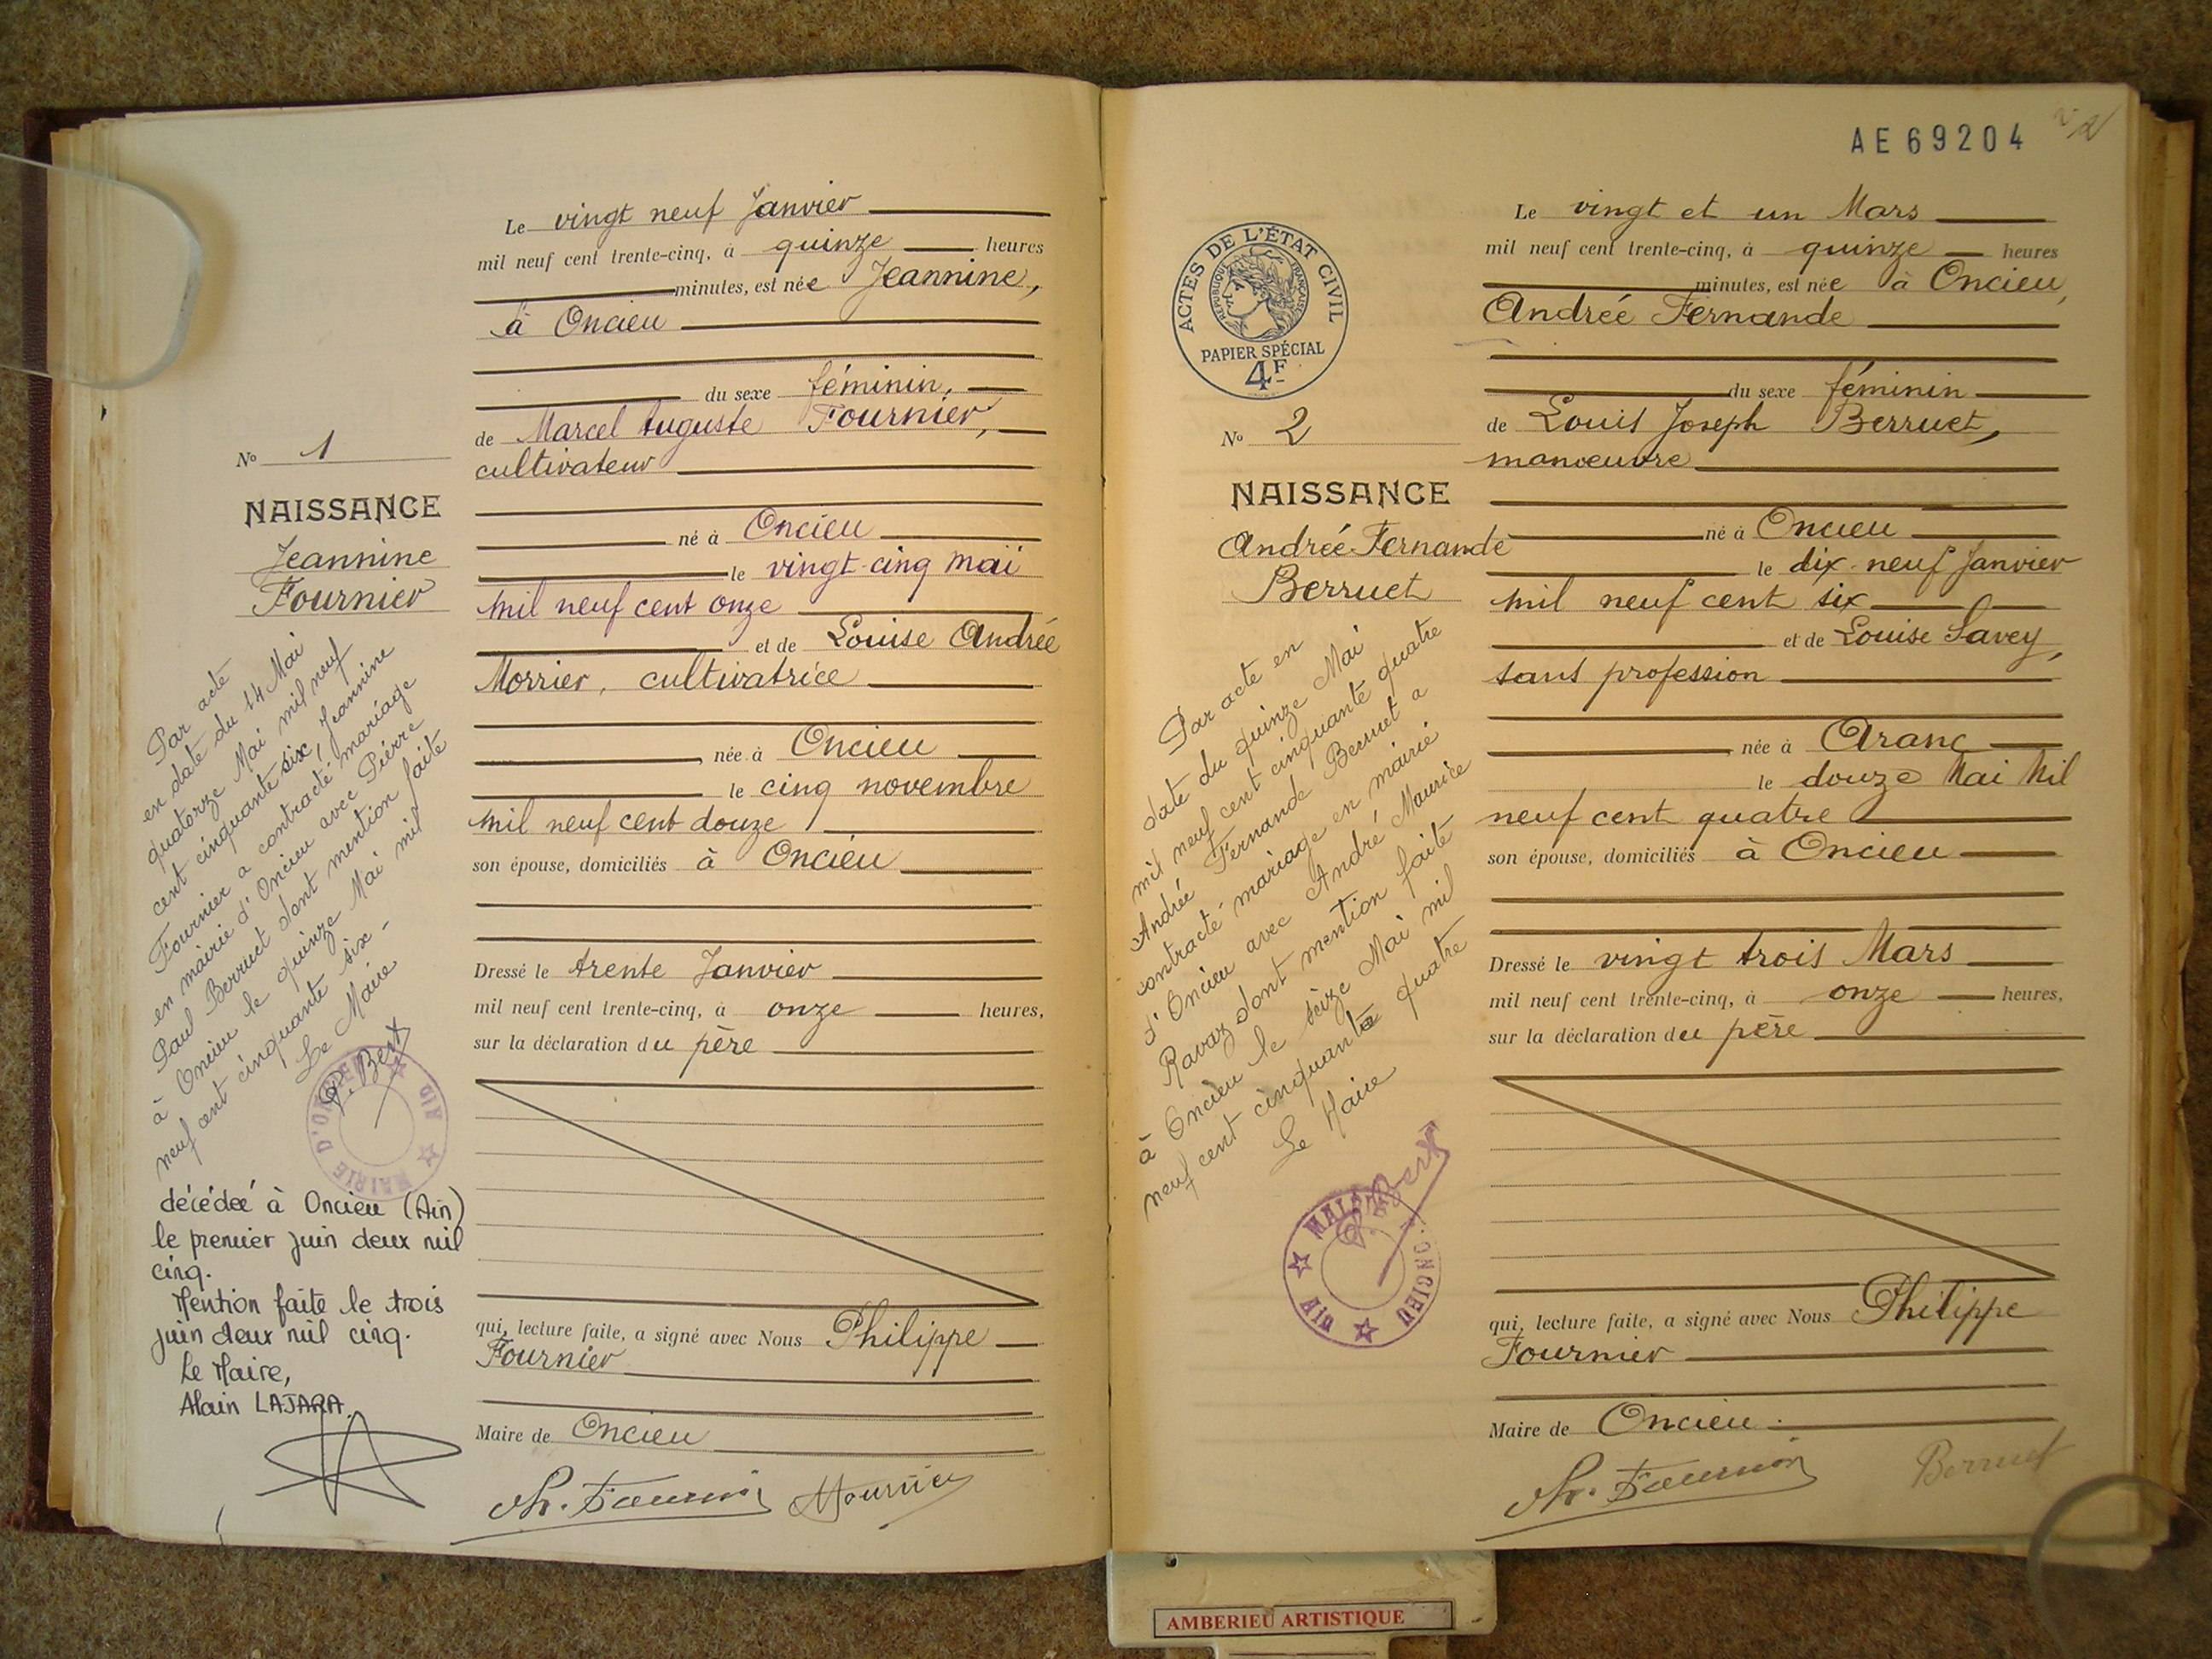 Le vingt neuf Janvier
mil neuf cent trente-cinq, à quinze heures
minutes, est née Jeannine,
à Oncieu
du sexe féminin,
de Marcel Auguste Fournier,
cultivateur
né à Oncieu
le vingt-cinq mai
mil neuf cent onze
et de Louise Andrée
Morrier, cultivatrice
née à Oncieu
le cinq novembre
mil neuf cent douze
son épouse, domiciliés à Oncieu
Dressé le trente Janvier
mil neuf cent trente-cinq, à onze heures,
sur la déclaration du père
qui, lecture faite, a signé avec Nous Philippe
Fournier
Maire de Oncieu
Ph. Fournier
No 1
NAISSANCE
Jeannine
Fournier
Par acte
en date du 14 Mai
quatorze Mai mil neuf
cent cinquante six, Jeannine
Fournier a contracté mariage
en mairie d'Oncieu avec Pierre
Paul Berruet dont mention faite
à Oncieu le quinze Mai mil
neuf cent cinquante six -
Le Maire
P. Bert
MAIRIE D'ONCIEU
AIN
décédée à Oncieu (Ain)
le premier juin deux mil
cinq.
Mention faite le trois
juin deux mil cinq.
Le Maire,
Alain LAJARA.
AE69204
Le vingt et un Mars
mil neuf cent trente-cinq, à quinze heures
minutes, est née à Oncieu,
Andréé Fernande
du sexe féminin
de Louis Joseph Berruet,
manoeuvre
né à Oncieu
le dix-neuf Janvier
mil neuf cent six
et de Louise Savey,
sans profession
née à Aranc
le douze Mai Mil
neuf cent quatre
son épouse, domiciliés à Oncieu
Dressé le vingt trois Mars
mil neuf cent trente-cinq, à onze heures,
sur la déclaration du père
qui, lecture faite, a signé avec Nous Philippe
Fournier
Maire de Oncieu.
Ph. Fournier Berruet
ACTES DE L'ÉTAT CIVIL
RÉPUBLIQUE FRANÇAISE
PAPIER SPÉCIAL
4F
No 2
NAISSANCE
Andréé Fernande
Berruet
Par acte en
date du quinze Mai
mil neuf cent cinquante quatre
Andrée Fernande Berruet a
contracté mariage en mairie
d'Oncieu avec André Maurice
Ravaz dont mention faite
à Oncieu le seize Mai mil
neuf cent cinquante quatre
Le Maire
P. Bert
MAIRIE D'ONCIEU
AIN
AMBERIEU ARTISTIQUE